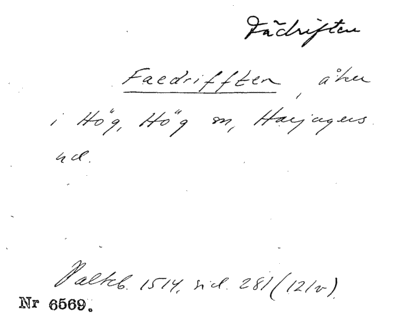 Fädriften
Faedrifften, åker
i Hög, Hög sn, Harjagers
hd.
Palkb. 1514, sid. 281 (12/v).
Nr 6569.